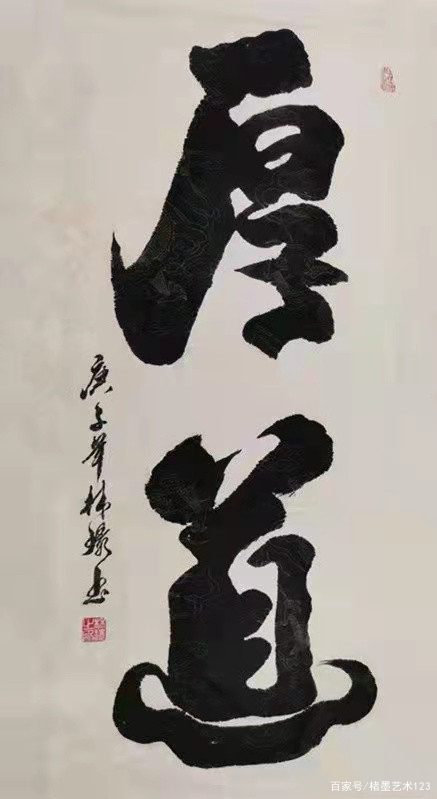 厚道
庚子年
百家号/楮墨艺术123